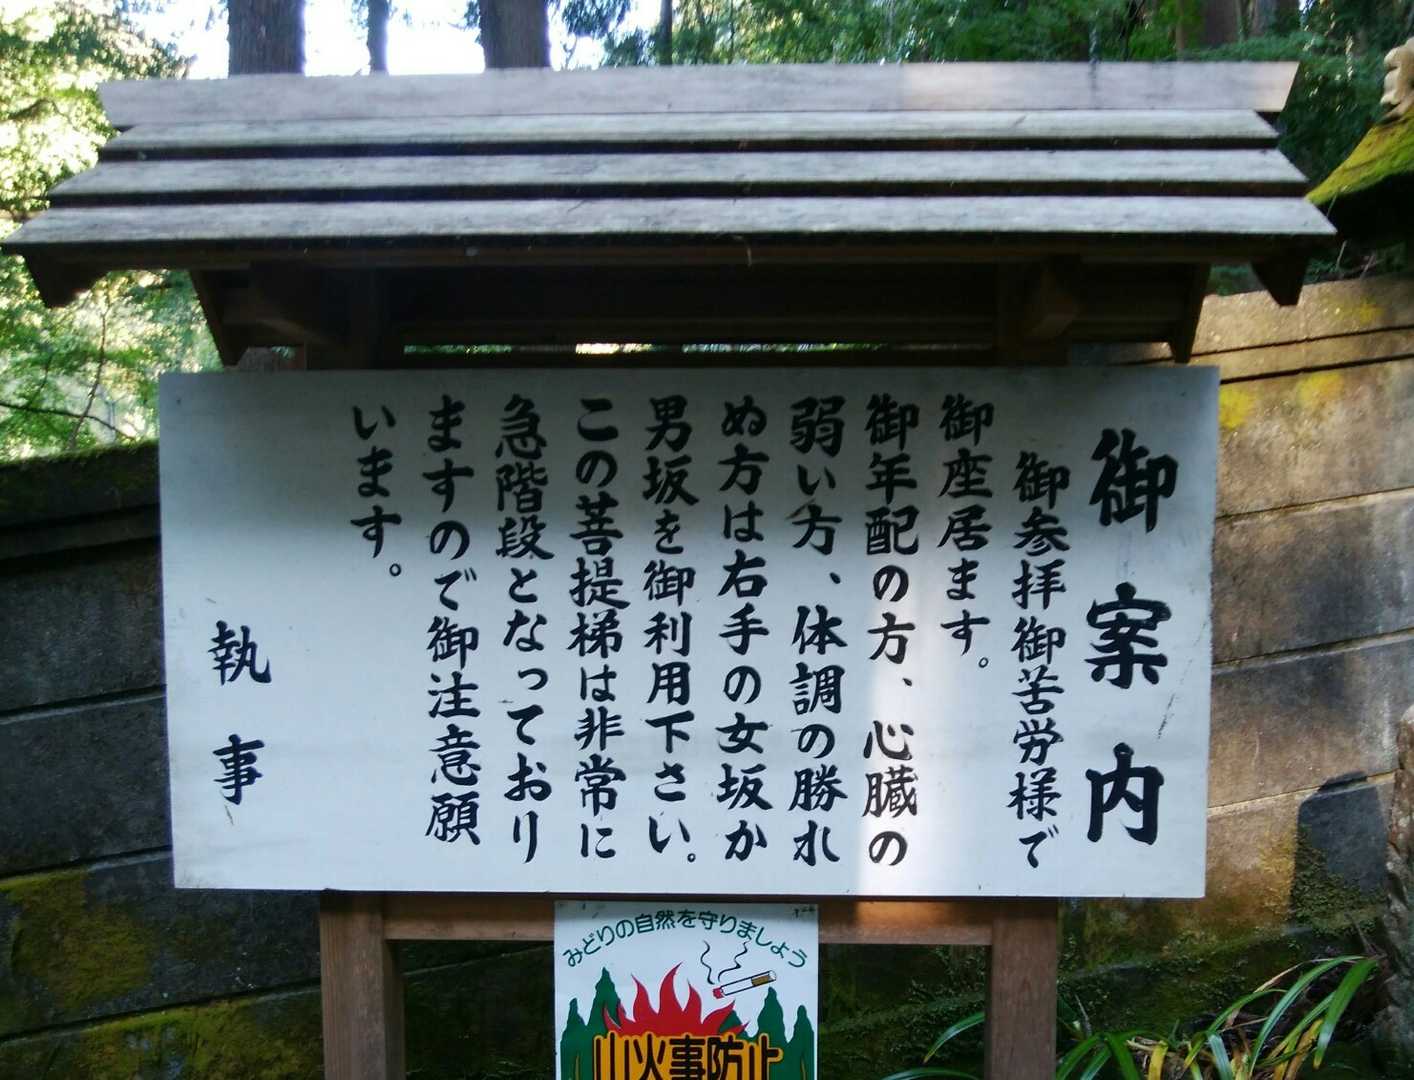 御案内
御参拝御苦労様で
御座居ます。
御年配の方、心臓の
弱い方、体調の勝れ
ぬ方は右手の女坂か
男坂を御利用下さい。
この菩提梯は非常に
急階段となっており
ますので御注意願
います。
執事
みどりの自然を守りましょう
山火事防止